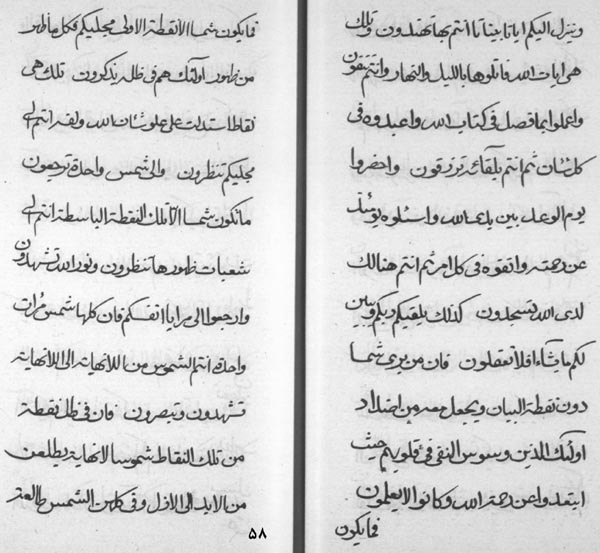 وينزل اليكم اياتا بيناتا انتم بها تهتدون وتلك
هي ايات الله فاتلوها بالليل والنهار وانتم تتقون
واعملوا بما فصل في كتاب الله واعبدوه في
كل شان ثم انتم بلقائه ترزقون واحضروا
يوم الوعد بين يدي الله واسئلوه يومئذ
عن رحمته واتقوه في كل امر ثم انتم هنالك
لدى الله تسجدون كذلك يلقيكم ربكم ويبين
لكم ما يشاء افلا تعقلون فان من يرى شمسا
دون نقطة البيان ويجعل معه من اضداد
اولئك الذين وسوس النفي في قلوبهم حيث
ابتعدوا عن رحمة الله وكانوا لا يعلمون
فما يكون
فما يكون شمسا الا نقطة الاولى مجليكم فكل ما ظهر
من ظهور اولئك هم في ظله يذكرون تلك هي
نقاط استدلت على علو شان الله ولقد انتم الى
مجليكم تنظرون والى شمس واحدة ترجعون
ما تكون شمسا الا تلك النقطة الباسطة انتم الى
شعبات ظهورها تنظرون ونور الله تشهدون
وارجعوا الى مرايا انفسكم فان كلها شمس مرات
واحدة انتم الشموس من اللانهاية الى اللانهاية
تشهدون وتبصرون فان في ظل نقطة
من تلك النقاط شموسا لانهاية يطلعن
من الابد الى الازل وفي كلهن الشمس طالعة
٥٨